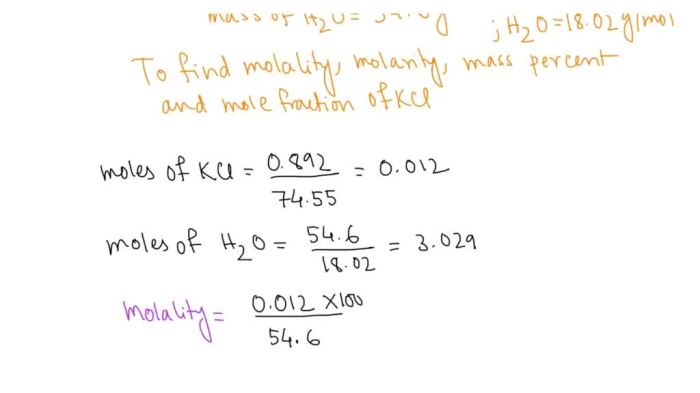 mass of H₂O = 54.6g ; H₂O = 18.02 g/mol
To find molality, molarity, mass percent
and mole fraction of KCl
moles of KCl = 0.892 / 74.55 = 0.012
moles of H₂O = 54.6 / 18.02 = 3.029
Molality = 0.012 × 100 / 54.6